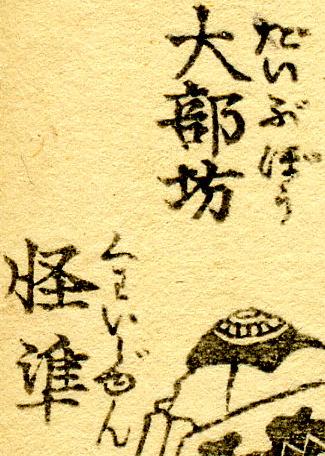 大部坊
だいぶばう
怪準
くわいじゆん